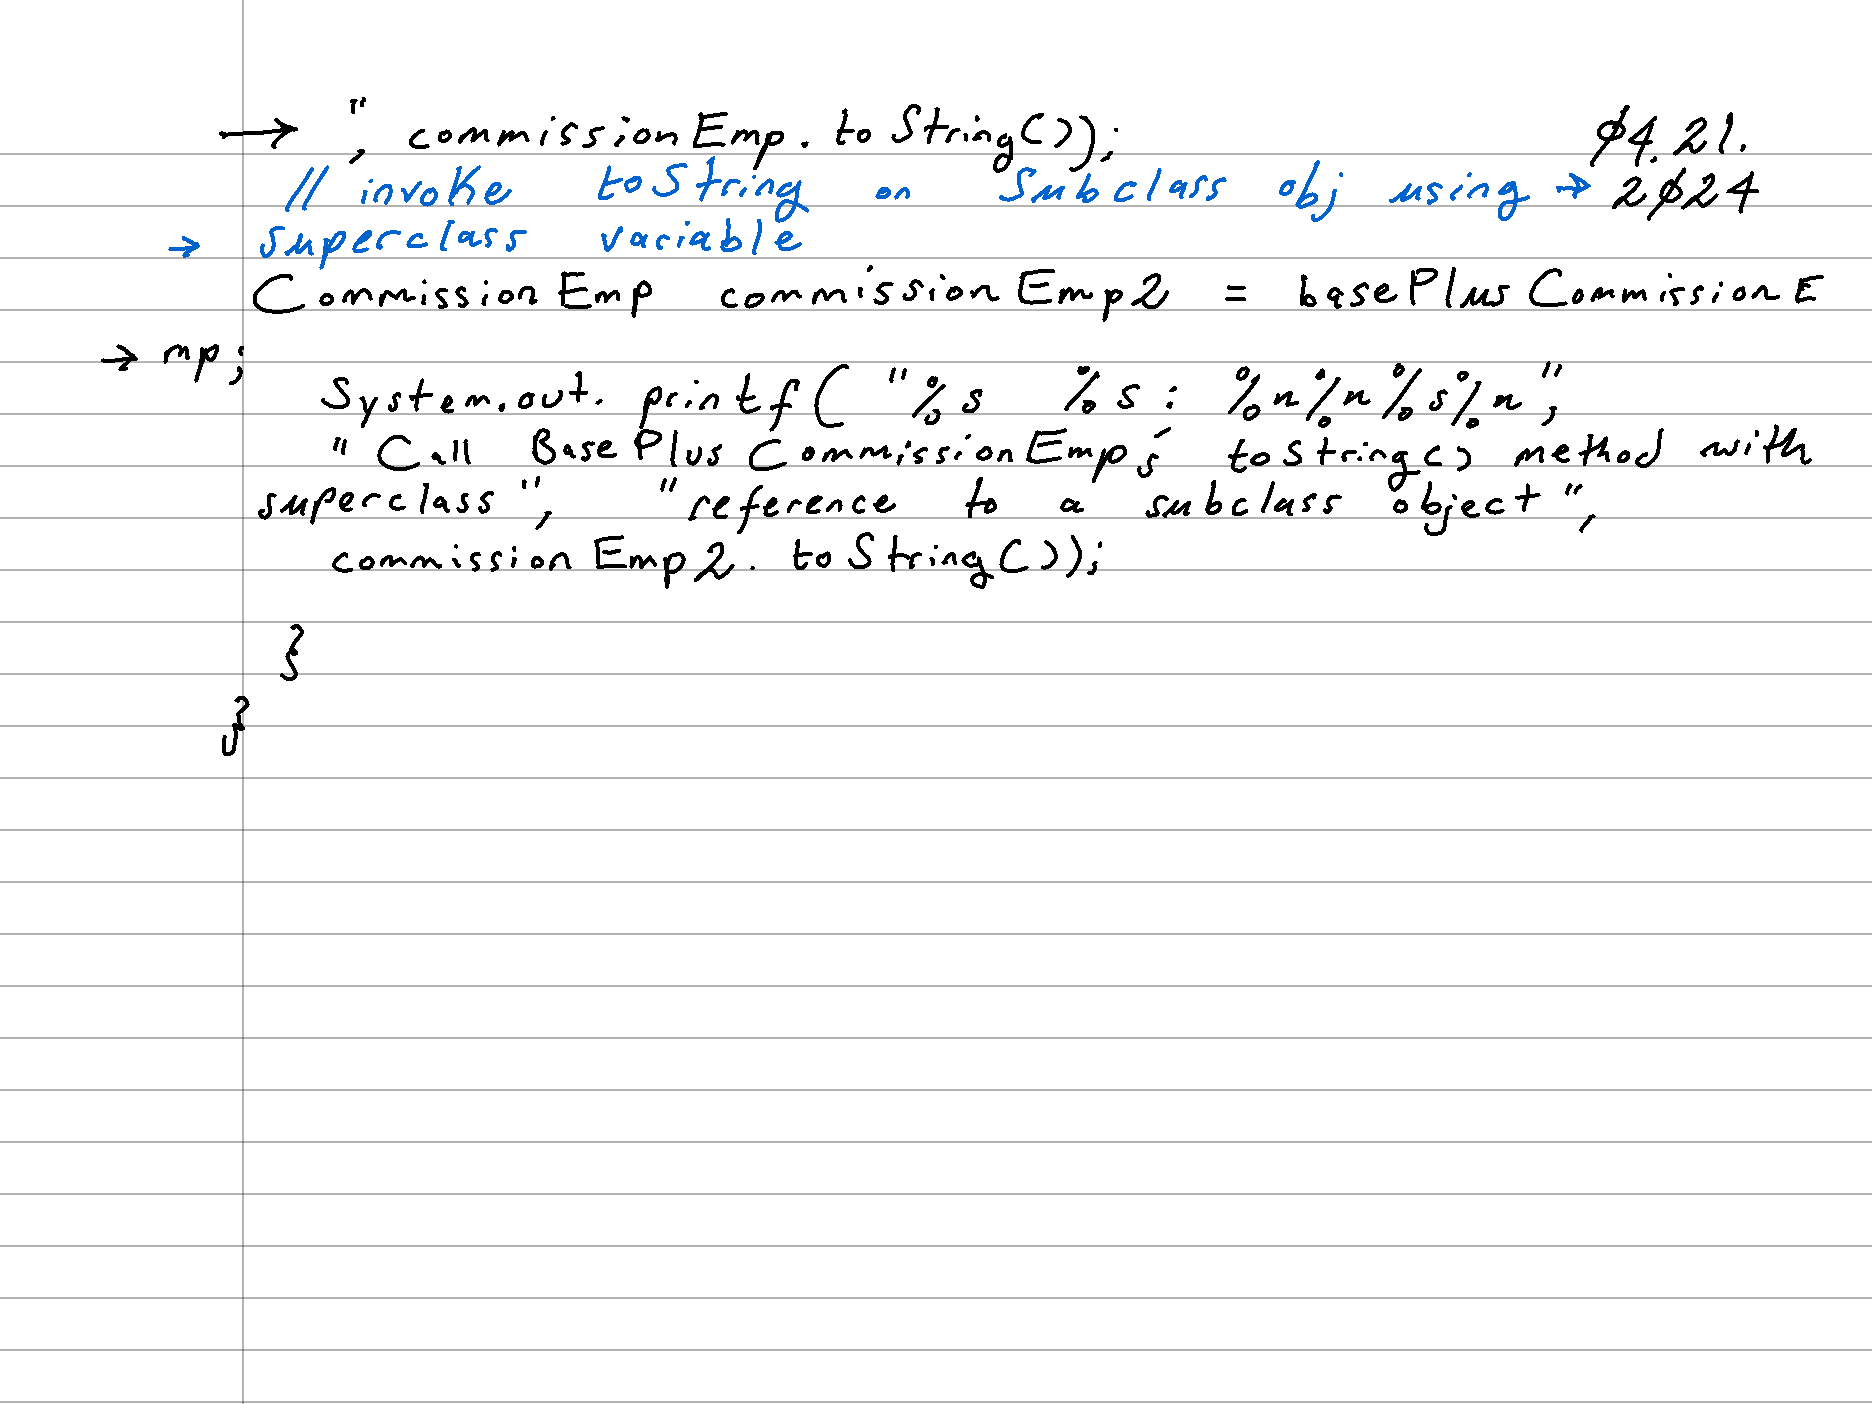 → ", commissionEmp.toString()); 04.21.
// invoke toString on Subclass obj using → 2024
→ superclass variable
CommissionEmp commissionEmp2 = basePlusCommissionE
→ mp;
System.out.printf("%s %s: %n%n%s%n",
"Call BasePlusCommissionEmp's toString() method with
superclass", "reference to a subclass object",
commissionEmp2.toString());
}
}